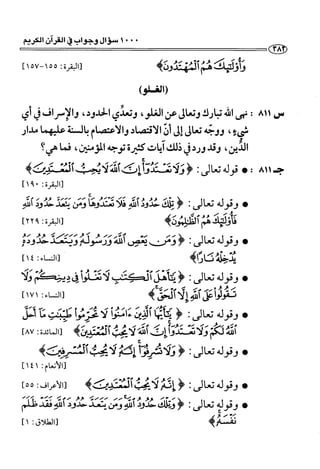 ١٠٠٠ سؤال وجواب في القرآن الكريم
٣٨٢
وَأُوْلَٰٓئِكَ هُمُ ٱلْمُهْتَدُونَ﴾ [البقرة: ١٥٥-١٥٧]
(الغلو)
س ٨١١ : نهى الله تبارك وتعالى عن الغلو، وتعدِّي الحدود، والإسراف في أي
شيء، ووجّه تعالى إلى أنّ الاقتصاد والاعتصام بالسنة عليهما مدار
الدِّين، وقد ورد في ذلك آيات كثيرة توجه المؤمنين، فما هي؟
جـ ٨١١ : • قوله تعالى: ﴿وَلَا تَعْتَدُوٓا۟ إِنَّ ٱللَّهَ لَا يُحِبُّ ٱلْمُعْتَدِينَ﴾
[البقرة: ١٩٠]
• وقوله تعالى: ﴿تِلْكَ حُدُودُ ٱللَّهِ فَلَا تَعْتَدُوهَا وَمَن يَتَعَدَّ حُدُودَ ٱللَّهِ
فَأُو۟لَٰٓئِكَ هُمُ ٱلظَّٰلِمُونَ﴾ [البقرة: ٢٢٩]
• وقوله تعالى: ﴿وَمَن يَعْصِ ٱللَّهَ وَرَسُولَهُۥ وَيَتَعَدَّ حُدُودَهُۥ
يُدْخِلْهُ نَارًا﴾ [النساء: ١٤]
• وقوله تعالى: ﴿يَٰٓأَهْلَ ٱلْكِتَٰبِ لَا تَغْلُوا۟ فِى دِينِكُمْ وَلَا
تَقُولُوا۟ عَلَى ٱللَّهِ إِلَّا ٱلْحَقَّ﴾ [النساء: ١٧١]
• وقوله تعالى: ﴿يَٰٓأَيُّهَا ٱلَّذِينَ ءَامَنُوا۟ لَا تُحَرِّمُوا۟ طَيِّبَٰتِ مَآ أَحَلَّ
ٱللَّهُ لَكُمْ وَلَا تَعْتَدُوٓا۟ إِنَّ ٱللَّهَ لَا يُحِبُّ ٱلْمُعْتَدِينَ﴾ [المائدة: ٨٧]
• وقوله تعالى: ﴿وَلَا تُسْرِفُوٓا۟ إِنَّهُۥ لَا يُحِبُّ ٱلْمُسْرِفِينَ﴾
[الأنعام: ١٤١]
• وقوله تعالى: ﴿إِنَّهُۥ لَا يُحِبُّ ٱلْمُعْتَدِينَ﴾ [الأعراف: ٥٥]
• وقوله تعالى: ﴿وَتِلْكَ حُدُودُ ٱللَّهِ وَمَن يَتَعَدَّ حُدُودَ ٱللَّهِ فَقَدْ ظَلَمَ
نَفْسَهُۥ﴾ [الطلاق: ١]